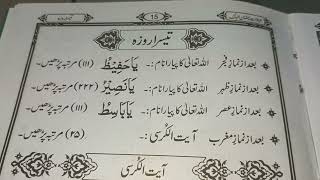 15
تیسرا روزہ
بعد از نماز فجر اللہ تعالیٰ کا پیارا نام:۔ یَا حَفِیْظُ (۱۱۱) مرتبہ پڑھیں۔
بعد از نماز ظہر اللہ تعالیٰ کا پیارا نام:۔ یَا نَصِیْرُ (۲۲۲) مرتبہ پڑھیں۔
بعد از نماز عصر اللہ تعالیٰ کا پیارا نام:۔ یَا بَاسِطُ (۱۱۱) مرتبہ پڑھیں۔
بعد از نماز مغرب آیت الکرسی:۔ (۲۵) مرتبہ پڑھیں۔
آیت الکرسی